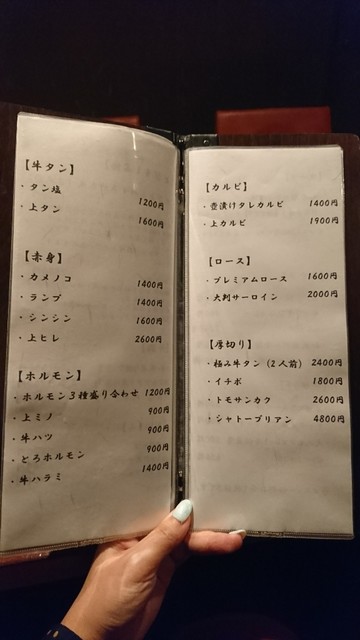 【牛タン】
・タン塩 1200円
・上タン 1600円
【赤身】
・カメノコ 1400円
・ランプ 1400円
・シンシン 1600円
・上ヒレ 2600円
【ホルモン】
・ホルモン3種盛り合わせ 1200円
・上ミノ 900円
・牛ハツ 900円
・とろホルモン 900円
・牛ハラミ 1400円
【カルビ】
・壺漬けタレカルビ 1400円
・上カルビ 1900円
【ロース】
・プレミアムロース 1600円
・大判サーロイン 2000円
【厚切り】
・極み牛タン(2人前) 2400円
・イチボ 1800円
・トモサンカク 2600円
・シャトーブリアン 4800円